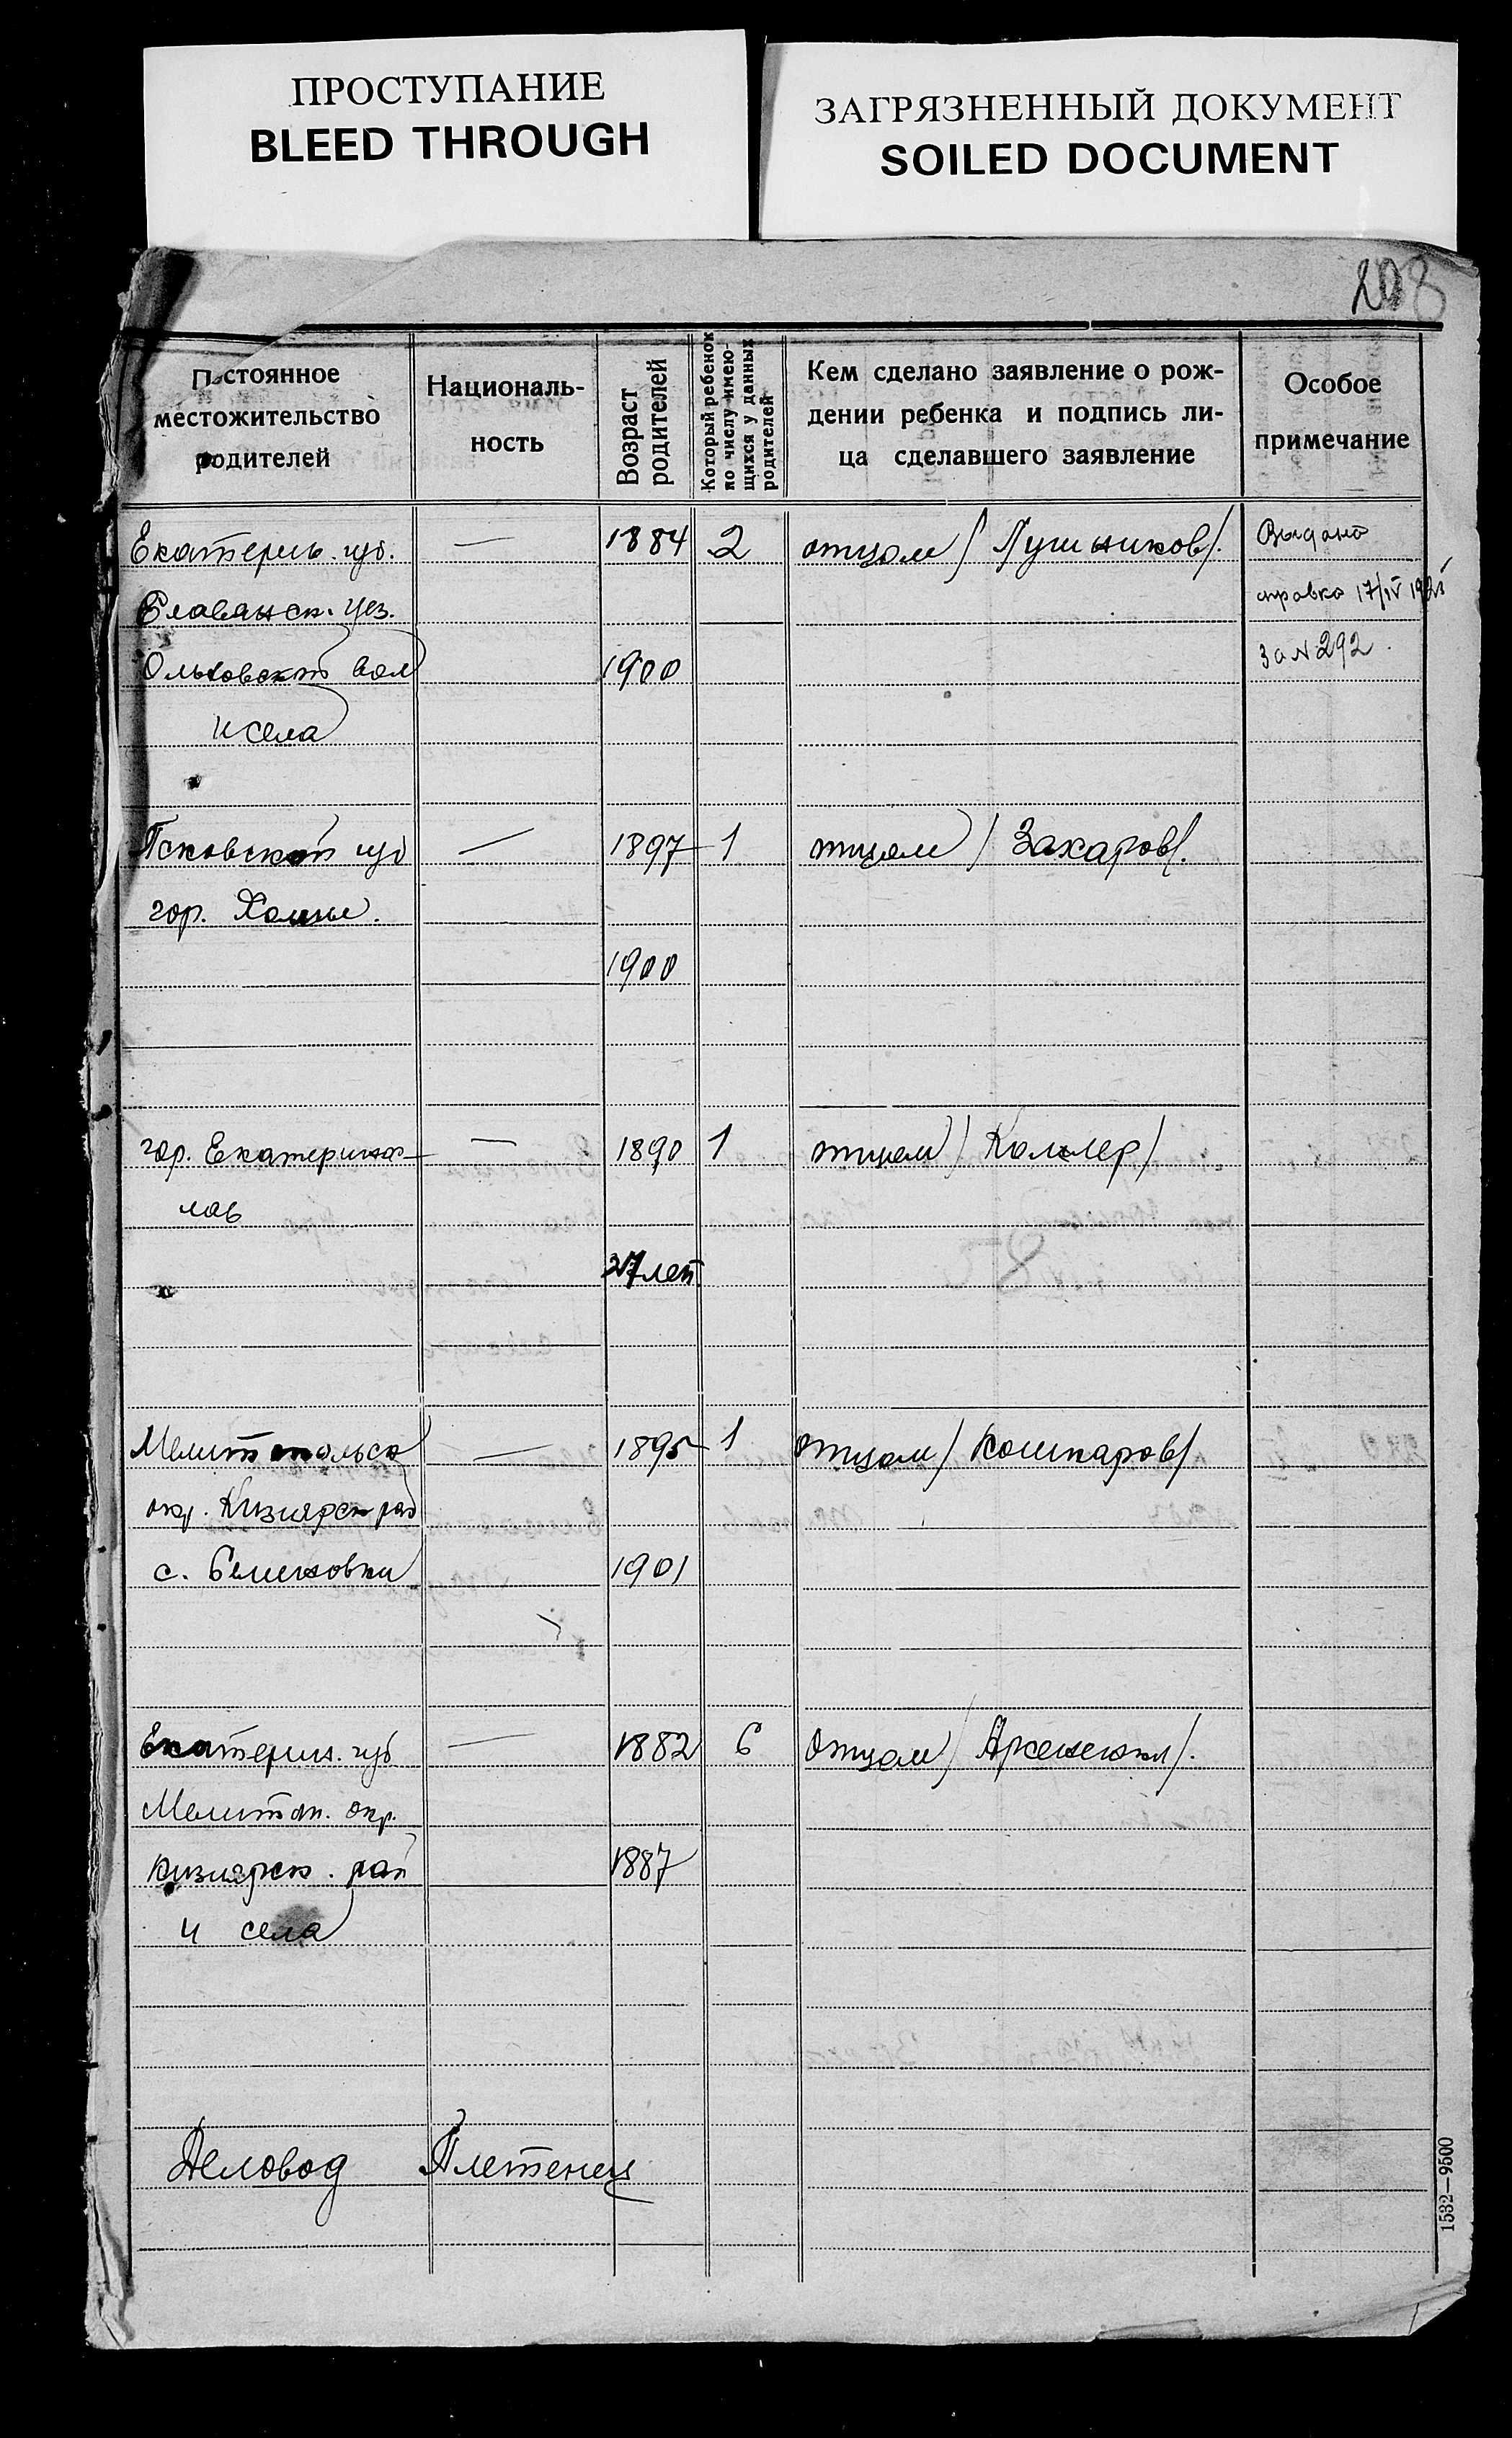 ПРОСТУПАНИЕ
BLEED THROUGH
ЗАГРЯЗНЕННЫЙ ДОКУМЕНТ
SOILED DOCUMENT
208
Постоянное местожительство родителей
Националь-ность
Возраст родителей
Который ребенок по числу имею-щихся у данных родителей
Кем сделано заявление о рож-дении ребенка и подпись ли-ца сделавшего заявление
Особое примечание
Екатеринь. губ. — 1884 2 отцом / Пушников /. Выдана
Славянск. уез. справка 17/IV 1925
Ольховской вол 1900 За № 292.
и села
Псковской губ — 1897 1 отцом / Захаров /.
гор. Холма.
1900
гор. Екатеринос- — 1890 1 отцом / Коллер /
лав
27 лет
Мелитопольск — 1895 1 отцом / Кошкаров /
окр. Кизиярск рай
с. Семеновки 1901
Екатерин. губ — 1882 6 Отцом /
Мелитоп. окр.
Кизиярск. рай 1887
и села
Деловод Плетенец
1532—9500